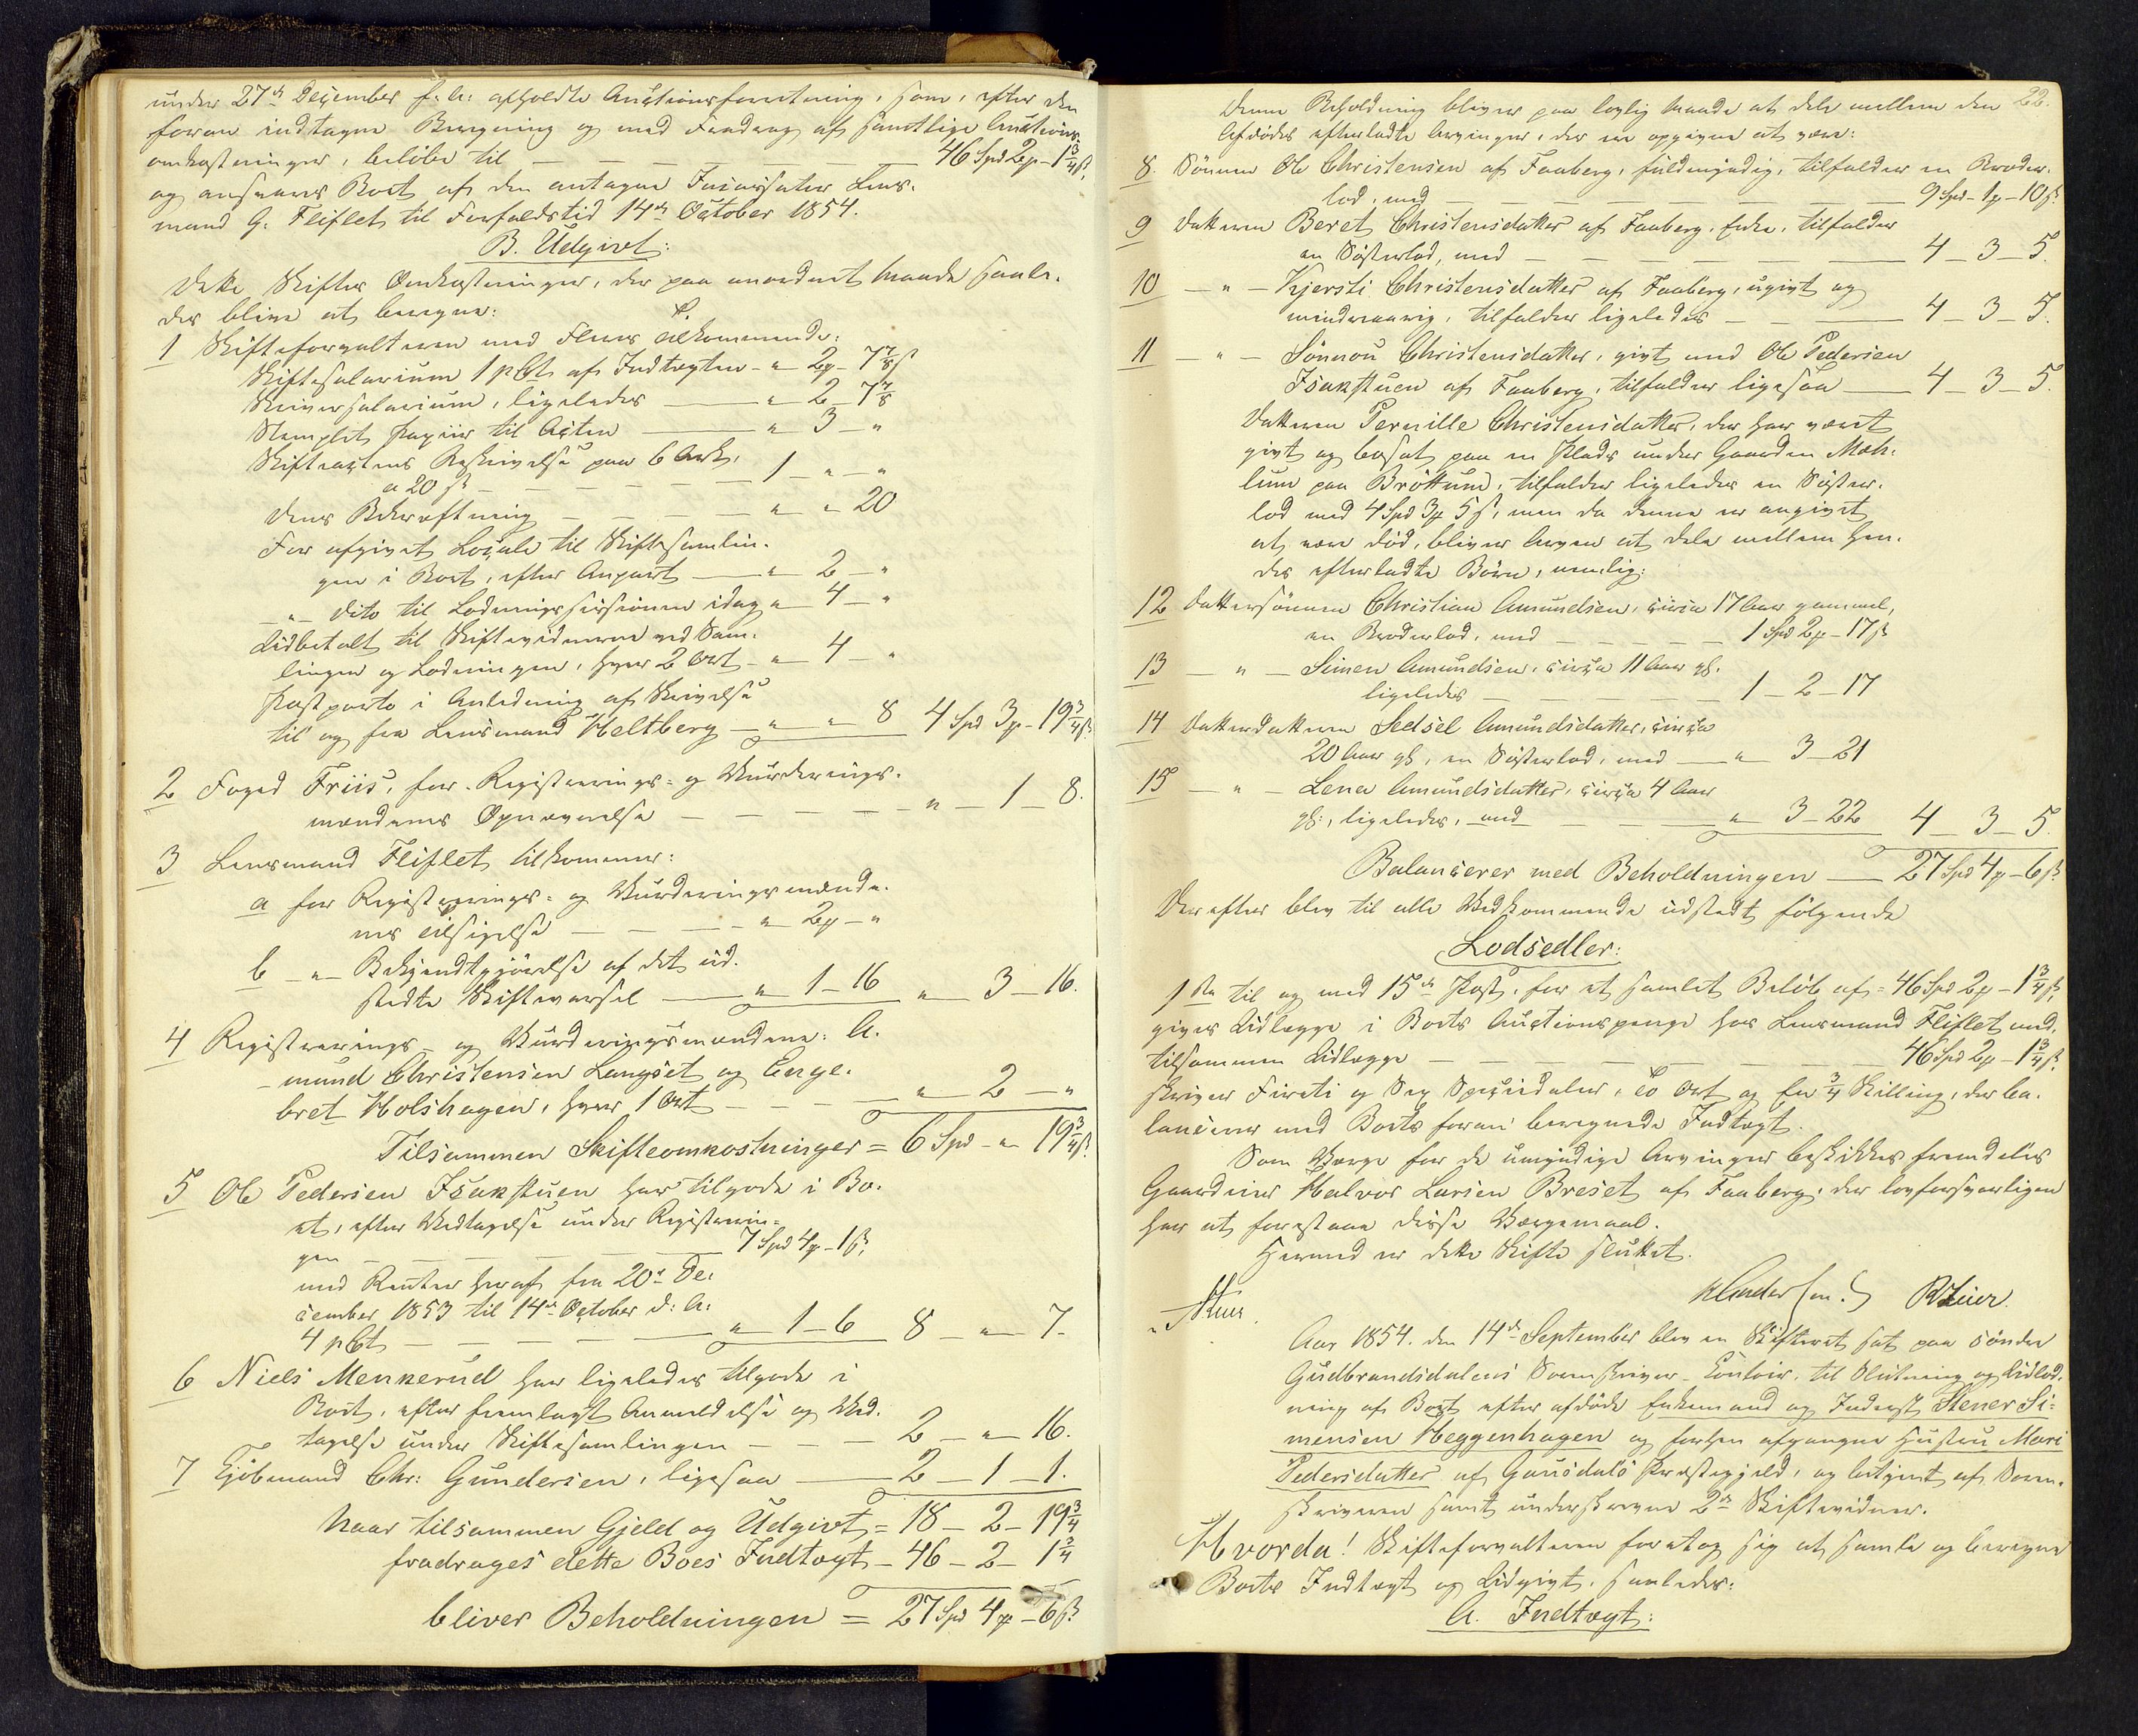 under 27de December f: A: afholdte Auctionsforretning, som, efter den
foran indtagne Beregning og med Fradrag af samtlige Auctions-
omkostninger, beløbe til — — — — — 46 Spd 2 ℔ - 1 3/4 ß,
og ansvares Boet af den antagne Incassator Lens-
mand G. Fliflet til Forfaldstid 14de October 1854.
B. Udgivt:
Dette Skiftes Omkostninger, der paa anordnet Maade saale-
des blive at beregne:
1 Skifteforvalteren med Flere tilkommende:
Skiftesalarium 1 pCt af Indtægten - " 2 ℔ - 7 7/8 ß
Skriversalarium, ligeledes — " 2 - 7 7/8
Stemplet Papiir til Acten — " 3 - "
Skifteactens Beskrivelse paa 6 Ark,
a 20 ß — — — — 1 - " - "
Dens Bekræftning — — — " " 20
For afgivet Locale til Skiftesamlin-
gen i Boet, efter Anpart — " 2 - "
- " - dito til Lodningssessionen idag " 4 - "
Udbetalt til Skiftevidnerne ved Sam-
lingen og Lodningen, hver 2 Ort - " 4 - "
Postporto i Anledning af Skrivelse
til og fra Lensmand Heltberg — " " 8 4 Spd 3 ℔ - 19 3/4 ß
2 Foged Friis, for Registrerings- og Vurderings-
mændenes Opnævnelse — — — " - 1 - 8.
3 Lensmand Fliflet tilkommer:
a for Registrerings- og Vurderingsmænde-
nes Tilsigelse — — — " 2 ℔ - "
b - " - Bekjendtgjørelse af det ud-
stedte Skiftevarsel — " 1 - 16 " 3 - 16.
4 Registrerings- og Vurderingsmændene: A-
mund Christensen Langset og Enge-
bret Holshagen, hver 1 Ort — — " 2 - "
Tilsammen Skifteomkostninger = 6 Spd - " 19 3/4 ß.
5 Ole Pedersen Isakstuen har tilgode i Bo-
et, efter Vedtagelse under Registrerin-
gen — — — — 7 Spd 4 ℔ - 1 ß,
med Renter heraf fra 20de De-
cember 1853 til 14de October d: A:
4 pCt — — — " 1 - 6 8 - " 7.
6 Niels Menkerud har ligeledes tilgode i
Boet, efter fremlagt Anmeldelse og Ved-
tagelse under Skiftesamlingen — — 2 - " 16.
7 Kjøbmand Chr: Gundersen, ligesaa — 2 - 1 - 1.
Naar tilsammen Gjeld og Udgivt = 18 - 2 - 19 3/4
fradrages dette Boes Indtægt - 46 - 2 - 1 3/4
bliver Beholdningen = 27 Spd 4 ℔ - 6 ß.
22.
Denne Beholdning bliver paa lovlig Maade at dele mellem den
Afdødes efterladte Arvinger, der ere opgivne at være:
8. Sønnen Ole Christensen af Faaberg, fuldmyndig, tilfalder en Broder-
lod, med — — — — — 9 Spd - 1 ℔ - 10 ß.
9 Datteren Beret Christensdatter af Faaberg, Enke, tilfalder
en Søsterlod, med — — — — 4 - 3 - 5.
10 - " - Kjersti Christensdatter af Faaberg, ugivt og
mindreaarig, tilfalder ligeledes — — 4 - 3 - 5.
11 - " - Sønnou Christensdatter, givt med Ole Pedersen
Isakstuen af Faaberg, tilfalder ligesaa — 4 - 3 - 5.
Datteren Pernille Christensdatter, der har været
givt og bosat paa en Plads under Gaarden Moh-
lum paa Brøttum, tilfalder ligeledes en Søster-
lod med 4 Spd 3 ℔ 5 ß, men da denne er angivet
at være død, bliver Arven at dele mellem hen-
des efterladte Børn, nemlig:
12 Dattersønnen Christian Amundsen, circa 17 Aar gammel,
en Broderlod, med — — — 1 Spd 2 ℔ - 17 ß
13 - " - Simen Amundsen, circa 11 Aar gl.
ligeledes — — — — 1 - 2 - 17
14 Datterdatteren Sedsel Amundsdatter, circa
20 Aar gl, en Søsterlod, med — " 3 - 21
15 - " - Lena Amundsdatter, circa 4 Aar
gl:, ligeledes, med — — " 3 - 22 4 - 3 - 5.
Balancerer med Beholdningen — 27 Spd 4 ℔ - 6 ß.
Derefter blev til alle Vedkommende udstedt følgende
Lodsedler:
1ste til og med 15de Post, for et samlet Beløb af = 46 Spd 2 ℔ - 1 3/4 ß,
gives Udlægge i Boets Auctionspenge hos Lensmand Fliflet med,
tilsammen Udlægge — — — — — 46 Spd 2 ℔ - 1 3/4 ß,
skriver Fireti og Sex Speciedaler, To Ort og En 3/4 Skilling, der ba-
lancerer med Boets foran beregnede Indtægt.
Som Værge for de umyndige Arvinger beskikkes fremdeles
Gaardeier Halvor Larsen Breset af Faaberg, der lovforsvarligen
har at forestaae disse Værgemaal.
Hermed er dette Skifte sluttet.
Aar 1854. den 14de September blev en Skifteret sat paa Søndre
Gudbrandsdalens Sorenskriver-Contoir, til Slutning og Udlod-
ning af Boet efter afdøde Enkemand og Inderst Stener Si-
mensen Heggenhagen og forhen afgangne Hustru Mari
Pedersdatter af Gausdals Præstegjeld, og betjent af Soren-
skriveren samt underskrevne 2de Skiftevidner.
Hvorda! Skifteforvalteren foretog sig at samle og beregne
Boets Indtægt og Udgivt, saaledes:
A. Indtægt: